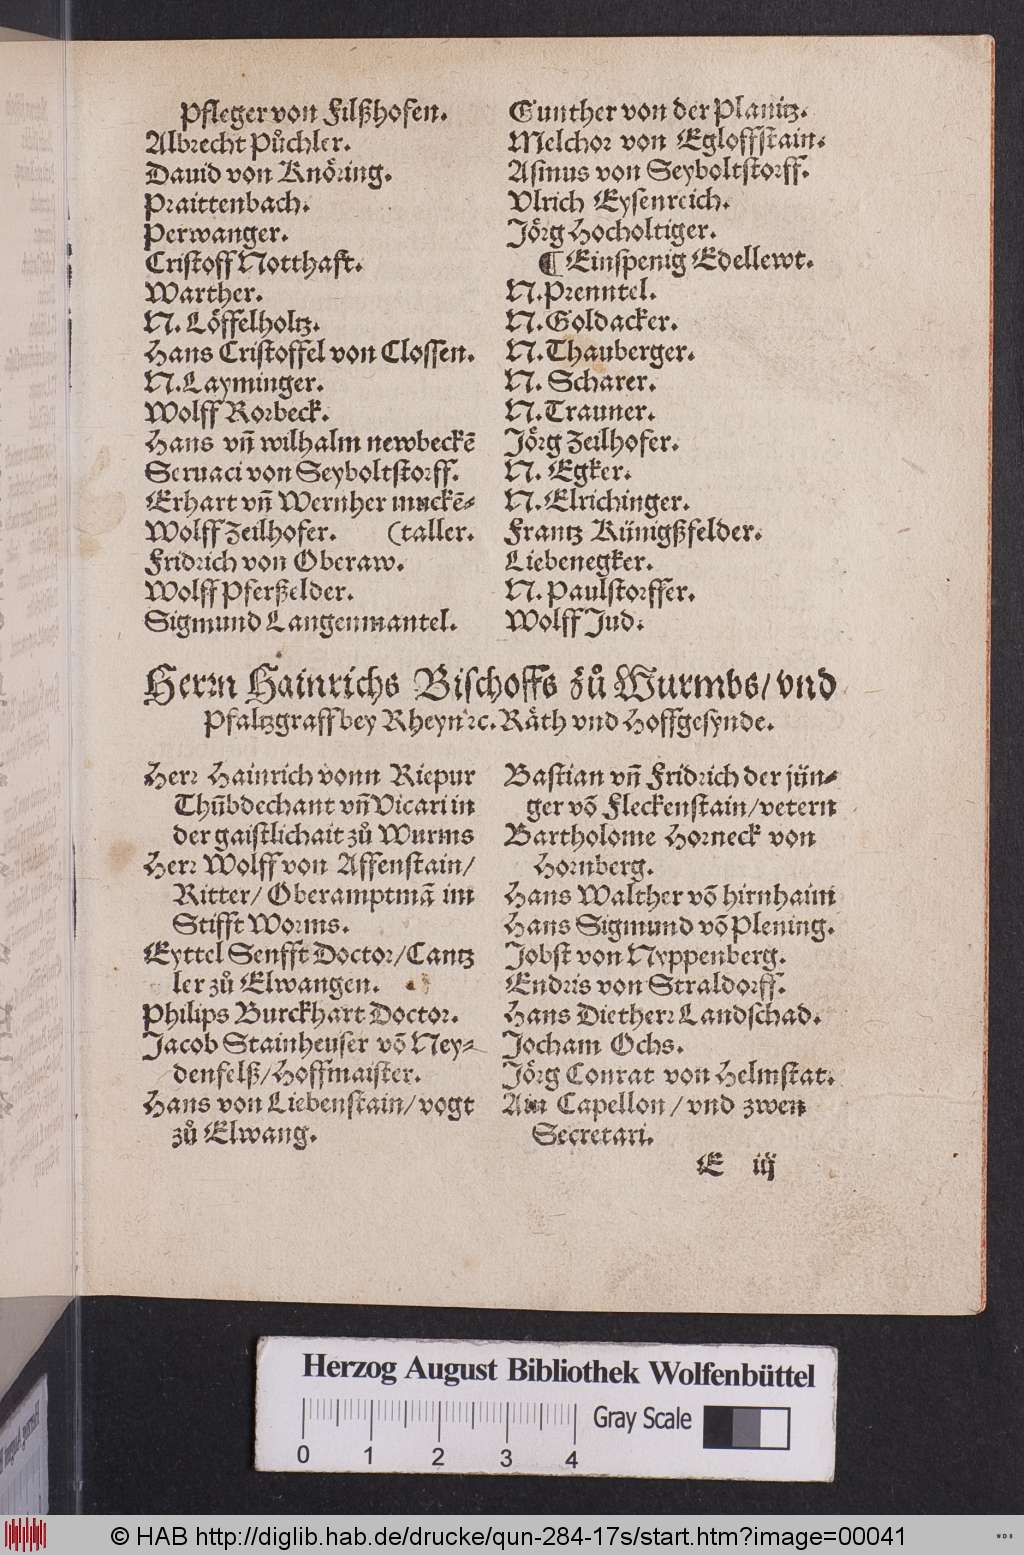 Pfleger von Filßhofen.
Albrecht Půchler.
Dauid von Knöring.
Praittenbach.
Perwanger.
Cristoff Notthaft.
Warther.
N. Löffelholtz.
Hans Cristoffel von Clossen.
N. Layminger.
Wolff Rorbeck.
Hans vñ wilhalm newbeckē
Seruaci von Seyboltstorff.
Erhart vñ Wernher muckē-
Wolff Zeilhofer. (taller.
Fridrich von Oberaw.
Wolff Pferßelder.
Sigmund Langenmantel.
Gunther von der Planitz.
Melchor von Egloffstain.
Asinus von Seyboltstorff.
Vlrich Eysenreich.
Jörg Hocholtiger.
¶ Einspenig Edellewt.
N. Prenntel.
N. Goldacker.
N. Thauberger.
N. Scharer.
N. Trauner.
Jörg Zeilhofer.
N. Egker.
N. Elrichinger.
Frantz Künigßfelder.
Liebenegker.
N. Paulstorffer.
Wolff Jud.
Herrn Hainrichs Bischoffs zů Wurmbs/ vnd
Pfaltzgraff bey Rheyn ꝛc. Räth vnd Hoffgesynde.
Herr Hainrich vonn Riepur
Thūbdechant vñ Vicari in
der gaistlichait zů Wurms
Herr Wolff von Affenstain/
Ritter/ Oberamptmā im
Stifft Worms.
Eyttel Senfft Doctor/ Cantz
ler zů Elwangen.
Philips Burckhart Doctor.
Jacob Stainheuser vō Ney-
denfelß/ Hoffmaister.
Hans von Liebenstain/ vogt
zů Elwang.
Bastian vñ Fridrich der jün-
ger vō Fleckenstain/ vetern
Bartholome Horneck von
Hornberg.
Hans Walther vō hirnhaim
Hans Sigmund vō Plening.
Jobst von Nyppenberg.
Endris von Straldorff.
Hans Dietherr Landschad.
Jocham Ochs.
Jörg Conrat von Helmstat.
Ain Capellon / vnd zwen
Secretari.
E iij
Herzog August Bibliothek Wolfenbüttel
Gray Scale
0 1 2 3 4
© HAB http://diglib.hab.de/drucke/qun-284-17s/start.htm?image=00041